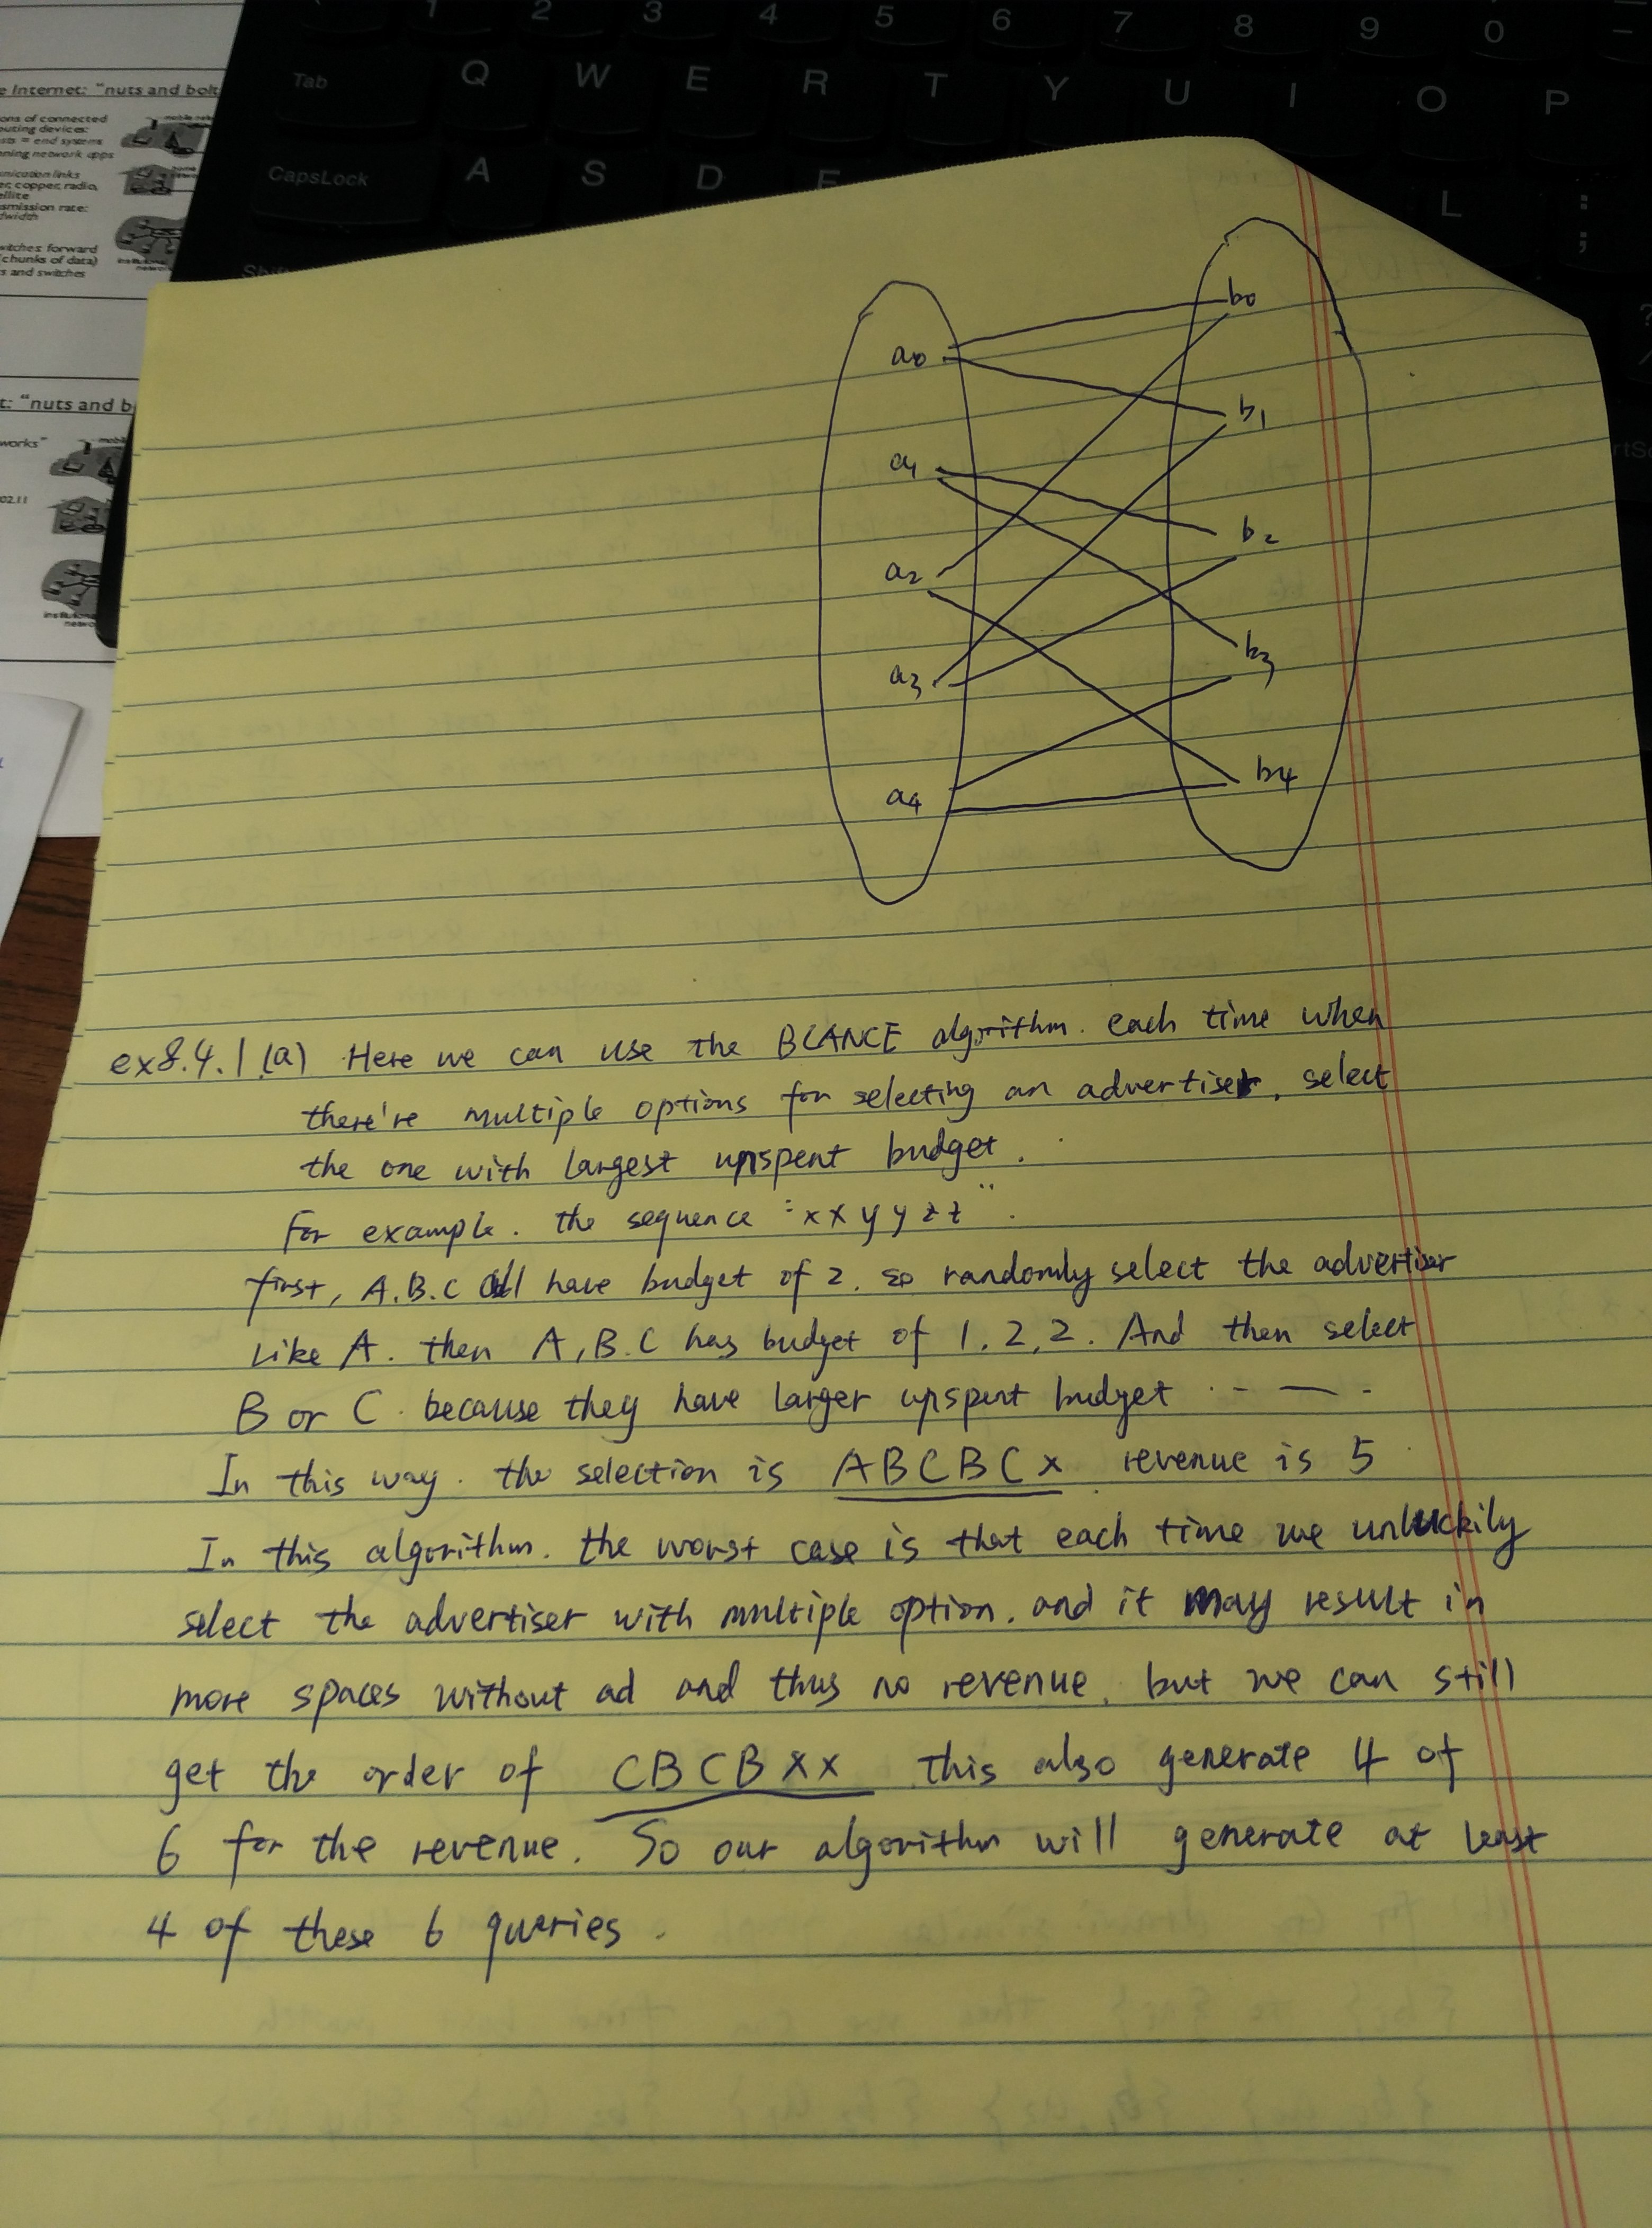 1 2 3 4 5 6 7 8 9 0
Tab Q W E R T Y U I O P
CapsLock A S D F L ; :
e Internet: "nuts and bolt
ons of connected
outing devices:
sts = end systems
ning network apps
munication links
er, copper, radio,
ellite
smission rate:
dwidth
witches forward
(chunks of data)
s and switches
t: "nuts and b
works"
02.11
a0 b0
a1 b1
a2 b2
a3 b3
a4 b4
ex8.4.1 (a) Here we can use the BLANCE algorithm. each time when
there're multiple options for selecting an advertiser, select
the one with largest unspent budget.
For example. the sequence "xxyyzz".
first, A.B.C all have budget of 2. so randomly select the advertiser
like A. then A, B.C has budget of 1.2,2. And then select
B or C. because they have larger unspent budget . - — .
In this way. the selection is ABCBCx revenue is 5
In this algorithm. the worst case is that each time we unluckily
select the advertiser with multiple option. and it may result in
more spaces without ad and thus no revenue. but we can still
get the order of CBCBXX this also generate 4 of
6 for the revenue. So our algorithm will generate at least
4 of these 6 queries.